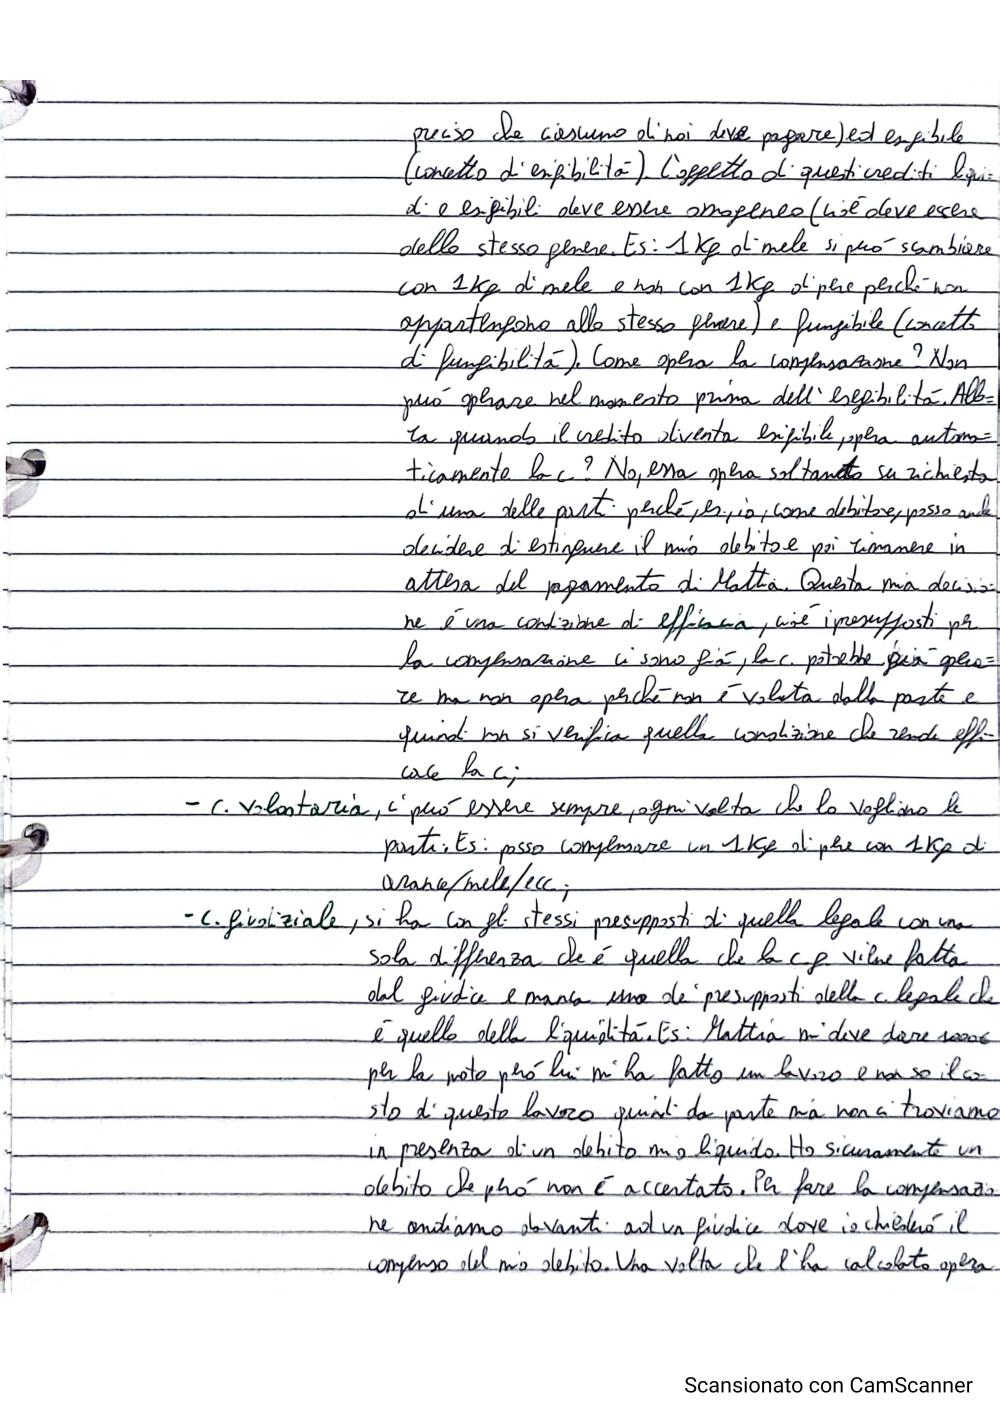 preciso che ciascuno di noi deve pagare) ed esigibile
(concetto di esigibilità). L'oggetto di questi crediti liqui=
di e esigibili deve essere omogeneo (cioè deve essere
dello stesso genere. Es: 1 Kg di mele si può scambiare
con 1 Kg di mele e non con 1 Kg di pere perché non
appartengono allo stesso genere) e fungibile (concetto
di fungibilità). Come opera la compensazione? Non
può operare nel momento prima dell'esigibilità. Allo=
ra quando il credito diventa esigibile, opera automa=
ticamente la c.? No, essa opera soltanto su richiesta
di una delle parti perché, es, io, come debitore, posso anche
decidere di estinguere il mio debito e poi rimanere in
attesa del pagamento di Mattia. Questa mia decisio-
ne è una condizione di efficacia, cioè i presupposti per
la compensazione ci sono già, la c. potrebbe già opera=
re ma non opera perché non è voluta dalla parte e
quindi non si verifica quella condizione che rende effi-
cace la c;
- c. volontaria, ci può essere sempre, ogni volta che lo vogliono le
parti. Es: posso compensare un 1 Kg di pere con 1 Kg di
arance/mele/ecc;
- c. giudiziale, si ha con gli stessi presupposti di quella legale con una
sola differenza che è quella che la c.g. viene fatta
dal giudice e manca uno de' presupposti della c. legale che
è quello della liquidità. Es: Mattia mi deve dare 1000€
per la moto però lui mi ha fatto un lavoro e non so il co-
sto di questo lavoro quindi da parte mia non ci troviamo
in presenza di un debito mio liquido. Ho sicuramente un
debito che però non è accertato. Per fare la compensazio-
ne andiamo davanti ad un giudice dove io chiederò il
compenso del mio debito. Una volta che l'ha calcolato opera
Scansionato con CamScanner